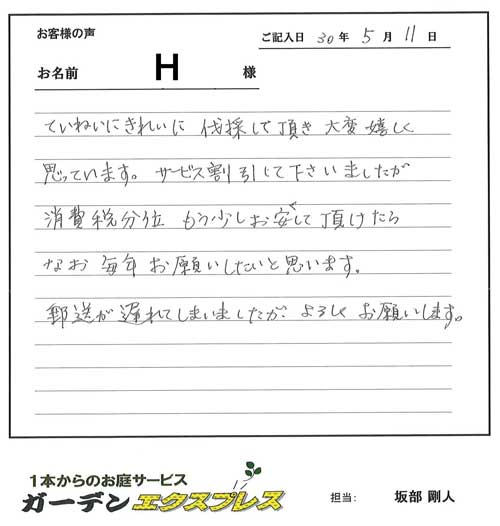 お客様の声
ご記入日 30 年 5 月 11 日
お名前 H 様
ていねいにきれいに 伐採して頂き 大変嬉しく
思っています。サービス割引して下さいましたが
消費税分位 もう少しお安くして頂けたら
なお 毎年 お願いしたいと思います。
郵送が遅れてしまいましたが、よろしくお願いします。
1本からのお庭サービス
ガーデンエクスプレス
担当: 坂部 剛人